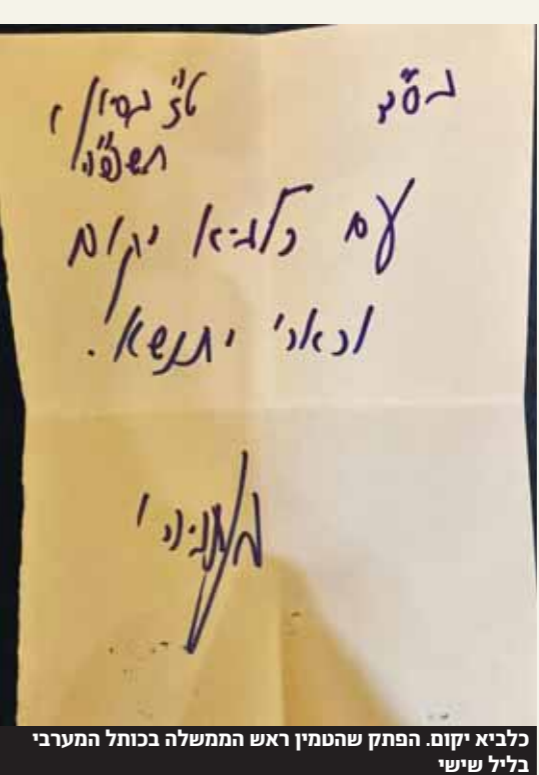 בס"ד ט"ז בסיון
תשפ"ה
עם כלביא יקום
וכארי יתנשא.
כלביא יקום. הפתק שהטמין ראש הממשלה בכותל המערבי
בליל שישי